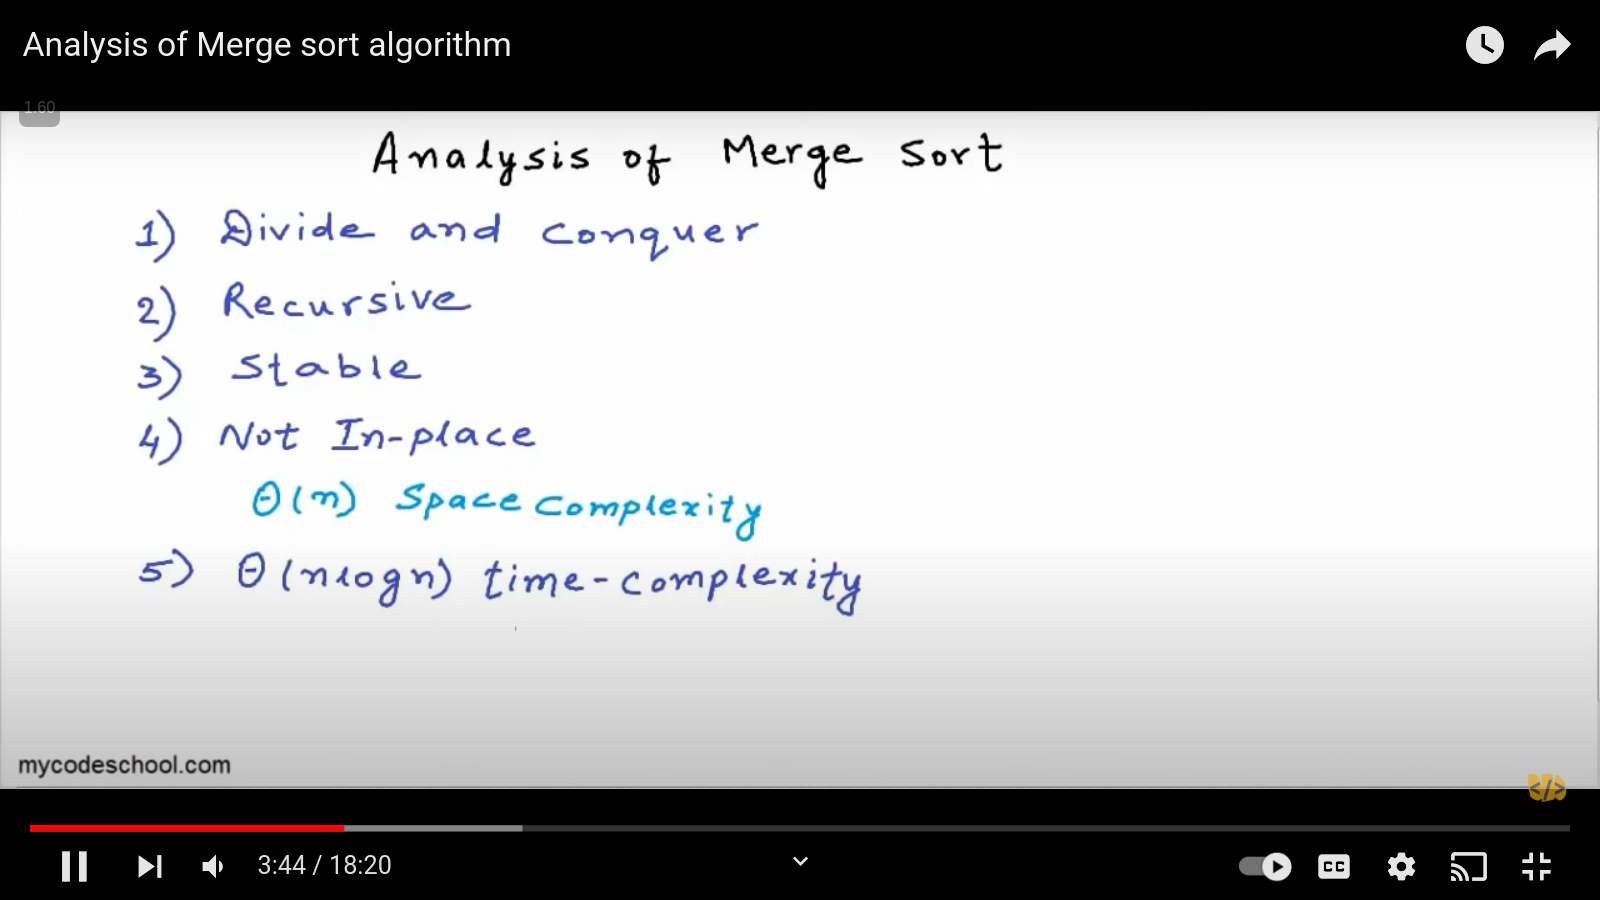 Analysis of Merge sort algorithm
1.60
Analysis of Merge Sort
1) Divide and conquer
2) Recursive
3) Stable
4) Not In-place
Θ(n) Space Complexity
5) Θ(nlogn) time-complexity
mycodeschool.com
</>
3:44 / 18:20
CC